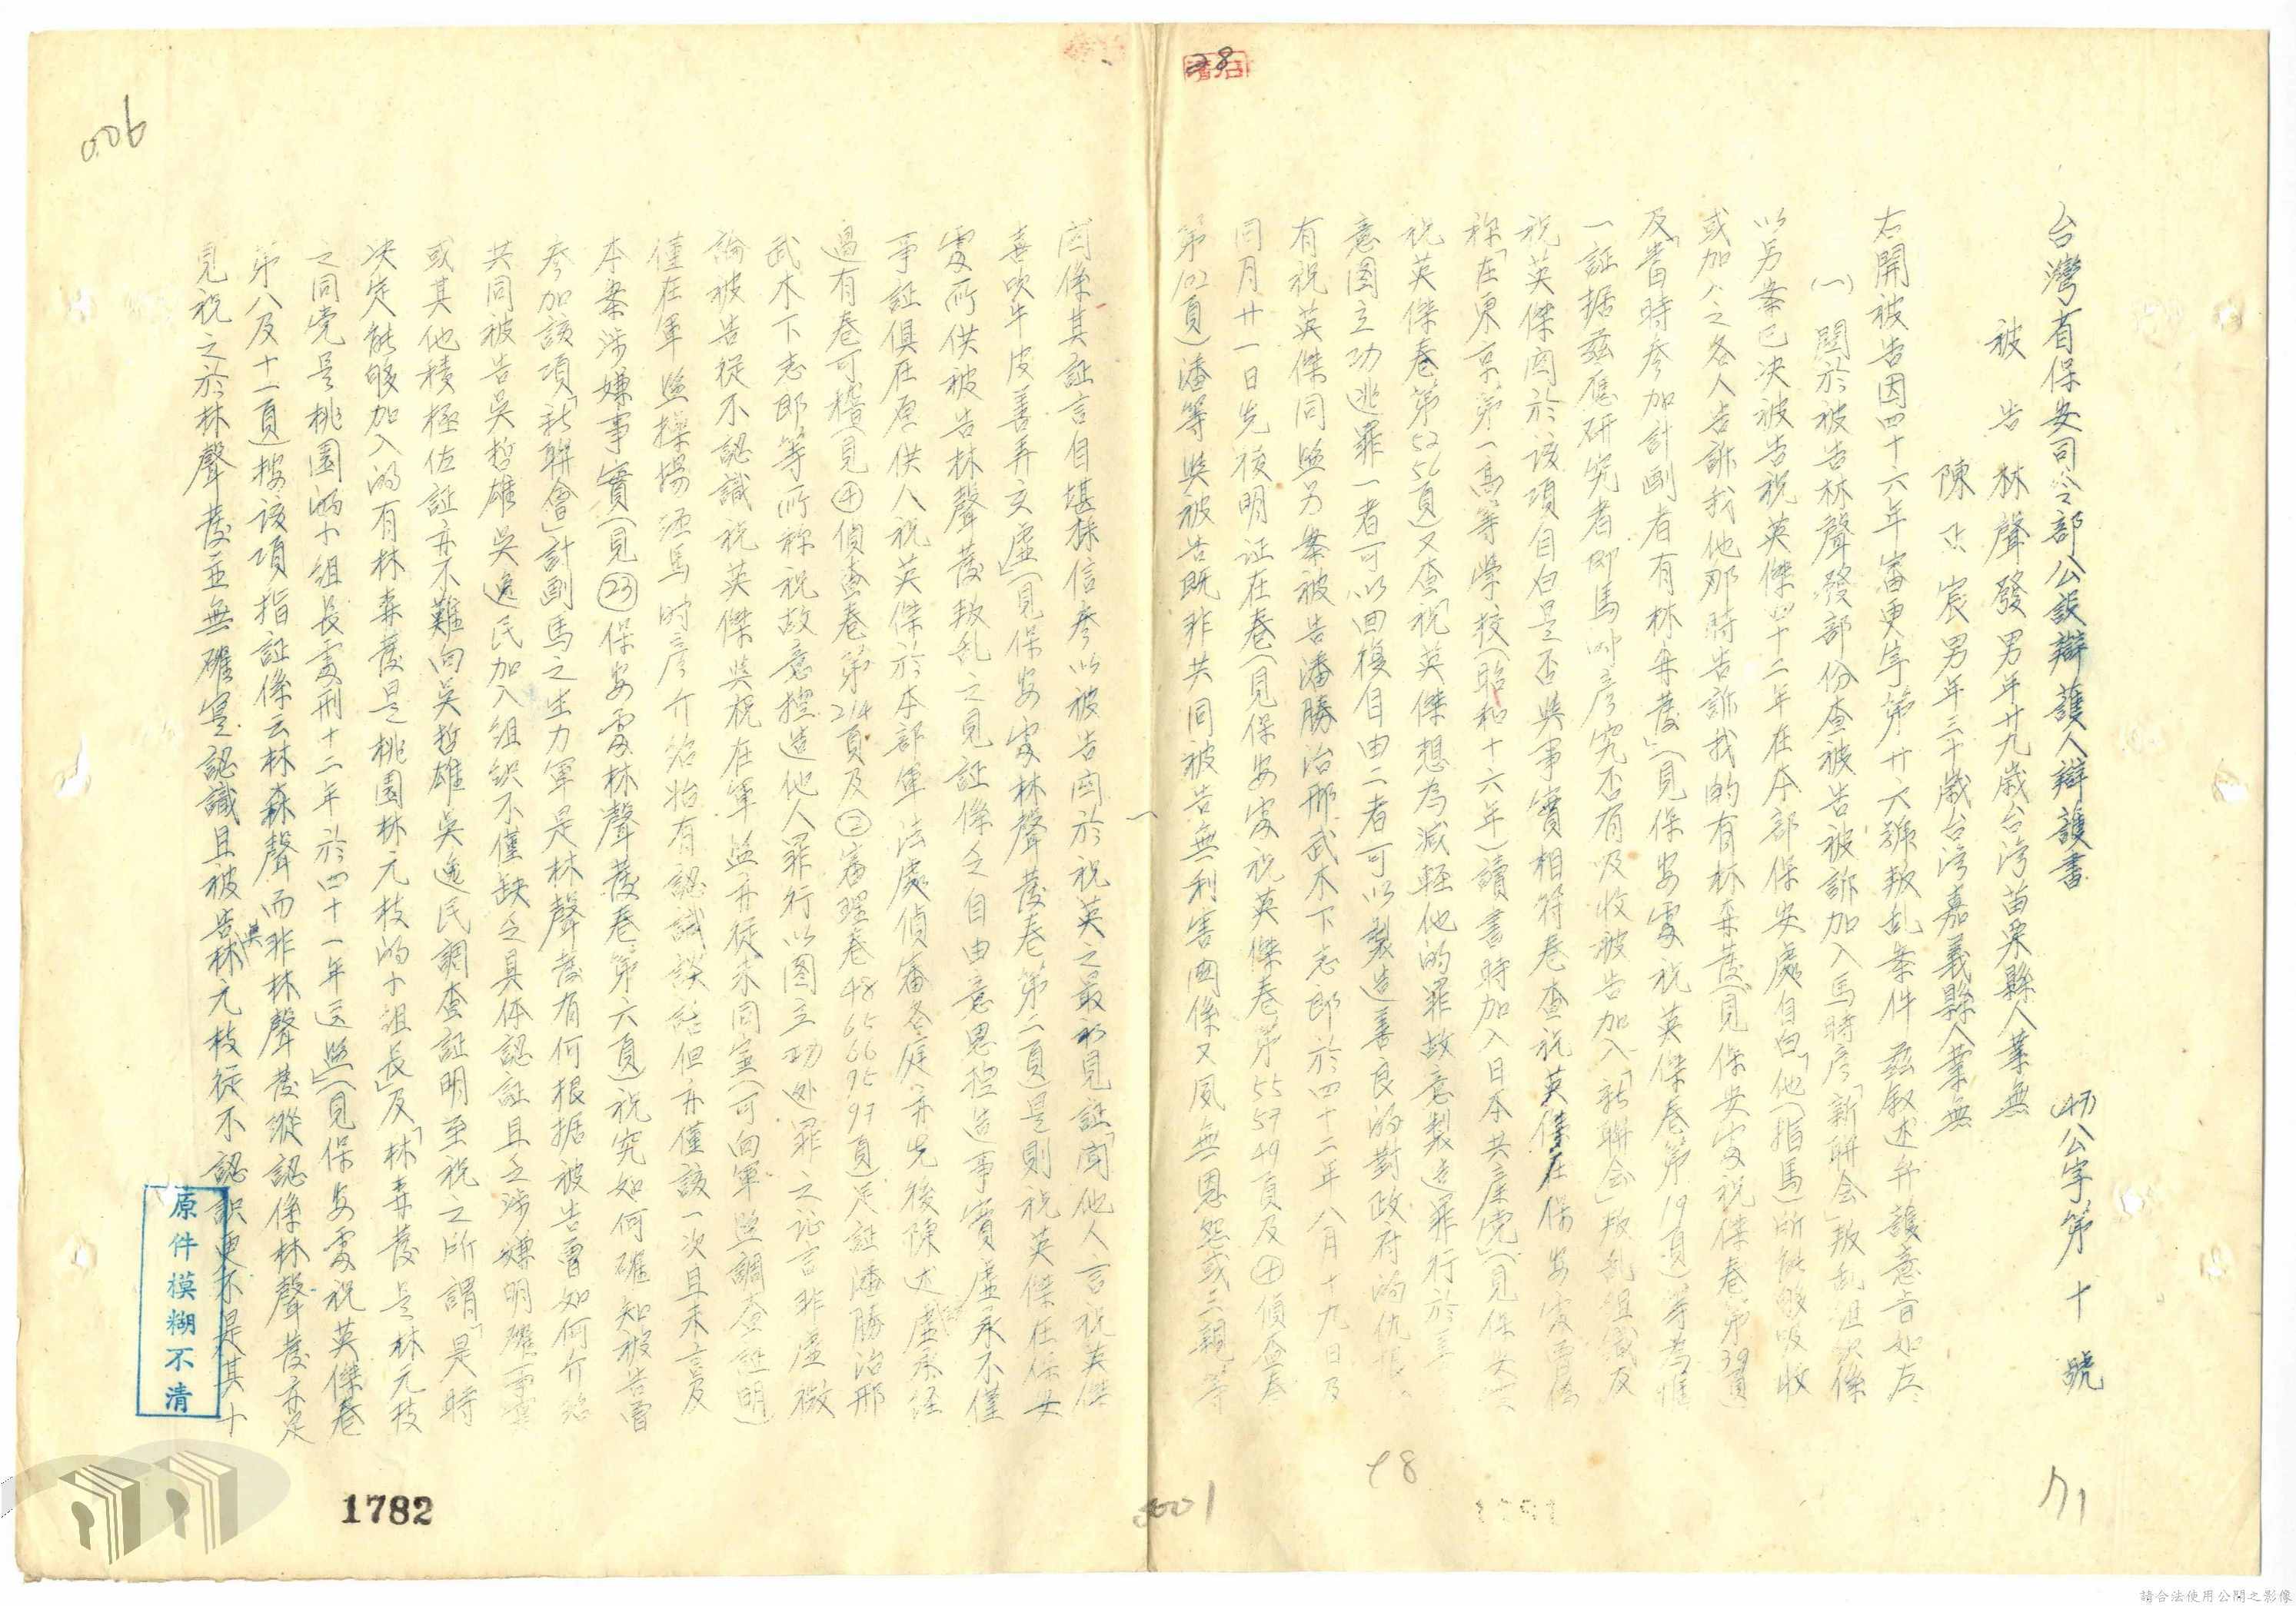 台灣省保安司令部公設辯護人辯護書
(47)公字第十號
被告 林聲發男年廿九歲台湾苗栗縣人業無
陳正宸男年三十歲台湾嘉義縣人業無
右開被告因四十六年審更字第廿六號叛乱案件茲叙述弁護意旨如左
(一)關於被告林聲發部份查被告被訴加入馬時彥「新联会」叛乱組织係
以另案已决被告祝英傑四十二年在本部保安處自白「他(指馬)所能够吸收
或加入之各人告訴我他那時告訴我的有林森發(見保安處祝傑卷第39頁
及「當時参加計劃者有林森發」(見保安處祝英傑卷第19頁)等為惟
一証据茲應研究者即馬時彥究否有吸收被告加入「新聯会」叛乱組織及
祝英傑関於該項自白是否與事實相符卷查祝英傑在保安處曾偽
称「在東京第一高等学校(昭和十六年)讀書時加入日本共産党」(見保安處
祝英傑卷第52 56頁)又查「祝英傑想為減輕他的罪故意製造罪行於主
意图立功逃罪一者可以回復自由二者可以製造善良的對政府的仇恨」
有祝英傑同監另案被告潘勝治邢武木下志郎於四十二年八月十九日及
同月廿一日先後明证在卷(見保安處祝英傑卷第55 57 49頁及④偵查卷
第102頁)潘等與被告既非共同被告無利害関係又夙無恩怨或三親等
関係其証言自堪採信参以被告関於祝英之最初見証「聞他人言祝英傑
喜吹牛皮善弄玄虛」(見保安處林聲發卷第二頁)是則祝英傑在保安
處所供被告林聲發叛乱之見証係乏自由意思控造事實虛承不僅
事証俱在原供人祝英傑於本部軍法處偵審各庭亦先後陳述虛承经
過有卷可稽(見④偵查卷第214頁及②審理卷48 65 66 95 97頁)足証潘勝治邢
武木下志郎等所称祝故意控造他人罪行以图立功逃罪之证言非虛微
論被告從不認識祝英傑與祝在軍监亦從未同室(可向軍監調查証明)
僅在軍监操場经馬时彥介绍始有認識談話但亦僅該一次且未言及
本案涉嫌事實(見㉓保安處林聲發卷第六頁)祝究如何確知被告曾
参加該項「新聯會」計劃馬之生力軍是林聲發有何根据被告曾如何介绍
共同被告吳哲雄吳逸民加入组织不僅缺乏具体認証且乏涉嫌明確事實
或其他積極佐証亦不難向吳哲雄吳逸民調查証明至祝之所謂「是時
决定能够加入的有林森發是桃園林元枝的小組長」及「林森發是林元枝
之同党是桃園的小组長處刑十二年於四十一年送监」(見保安處祝英傑卷
第八及十一頁)按該項指証係云林森聲而非林聲發縱認係林聲發亦足
見祝之於林聲發並無確實認識且被告與林元枝從不認訳更不是其小
一
28
006
98
71
8001
1782
原件模糊不清
請合法使用公開之影像